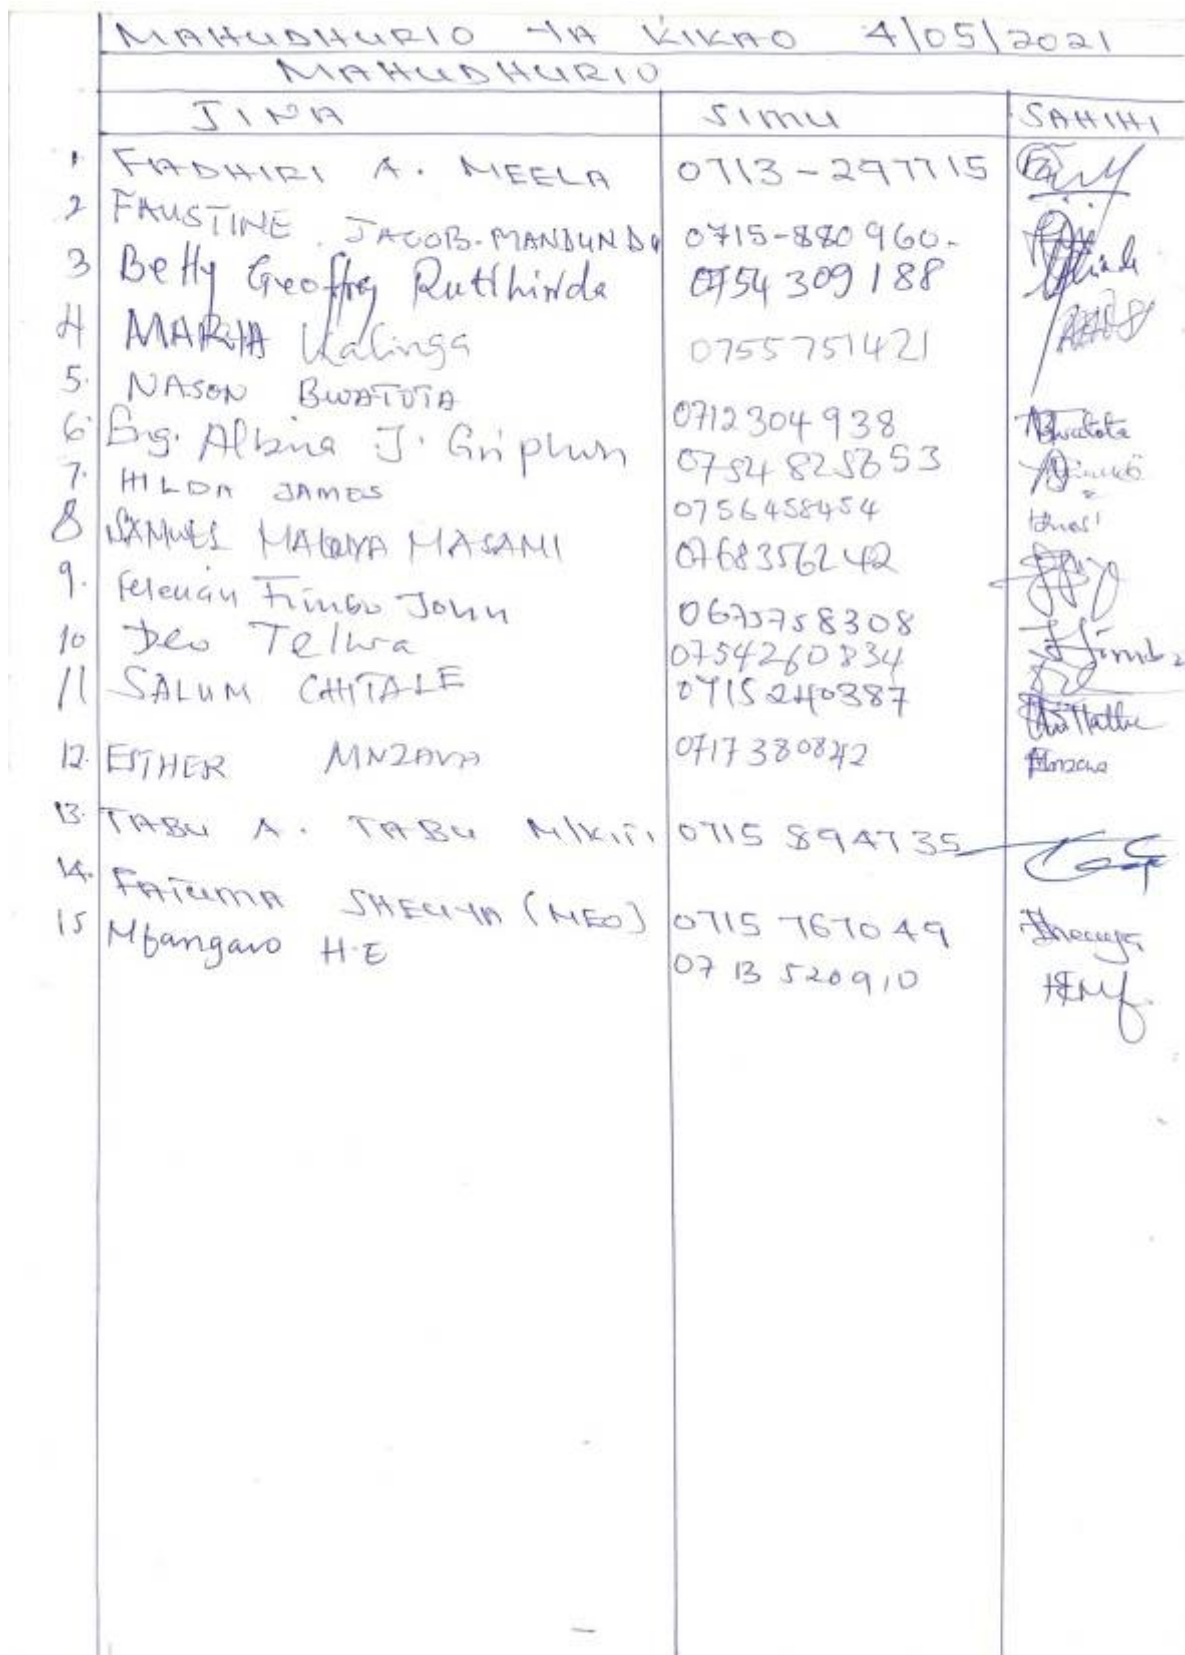 MAHUDHURIO YA KIKAO 4/05/2021
MAHUDHURIO
JINA SIMU SAHIHI
1 FADHIRI A. MEELA 0713-297715
2 FAUSTINE JACOB. MANDUNDU 0715-880960.
3 Betty Geoffrey 0754 309188
4 MARIA Kalinga 0755751421
5. NASON BWATOTA 0712304938 Bwatota
6 Eng. Albina J. 0754825653
7. HILDA JAMES 0756458454
8 SAMUEL MASAMI 0768356242
9. Fimbo John 0675758308
10 Deo Telwa 0754260834
11 SALUM CHITALE 0715240387
12. ESTHER MNZAVA 0717380842 Mnzava
13. TABU A. TABU 0715 894735
14. FATUMA SHECUYA (MEO) 0715 767049
15 H.E 0713 520910